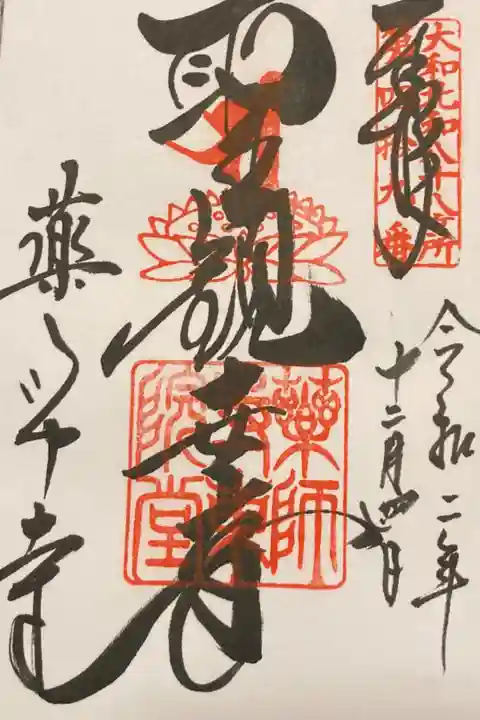 大和北部八十八ヶ所
第四拾九番
奉拝
令和二年
十二月四日
聖観世音
薬師寺東院堂
薬師寺